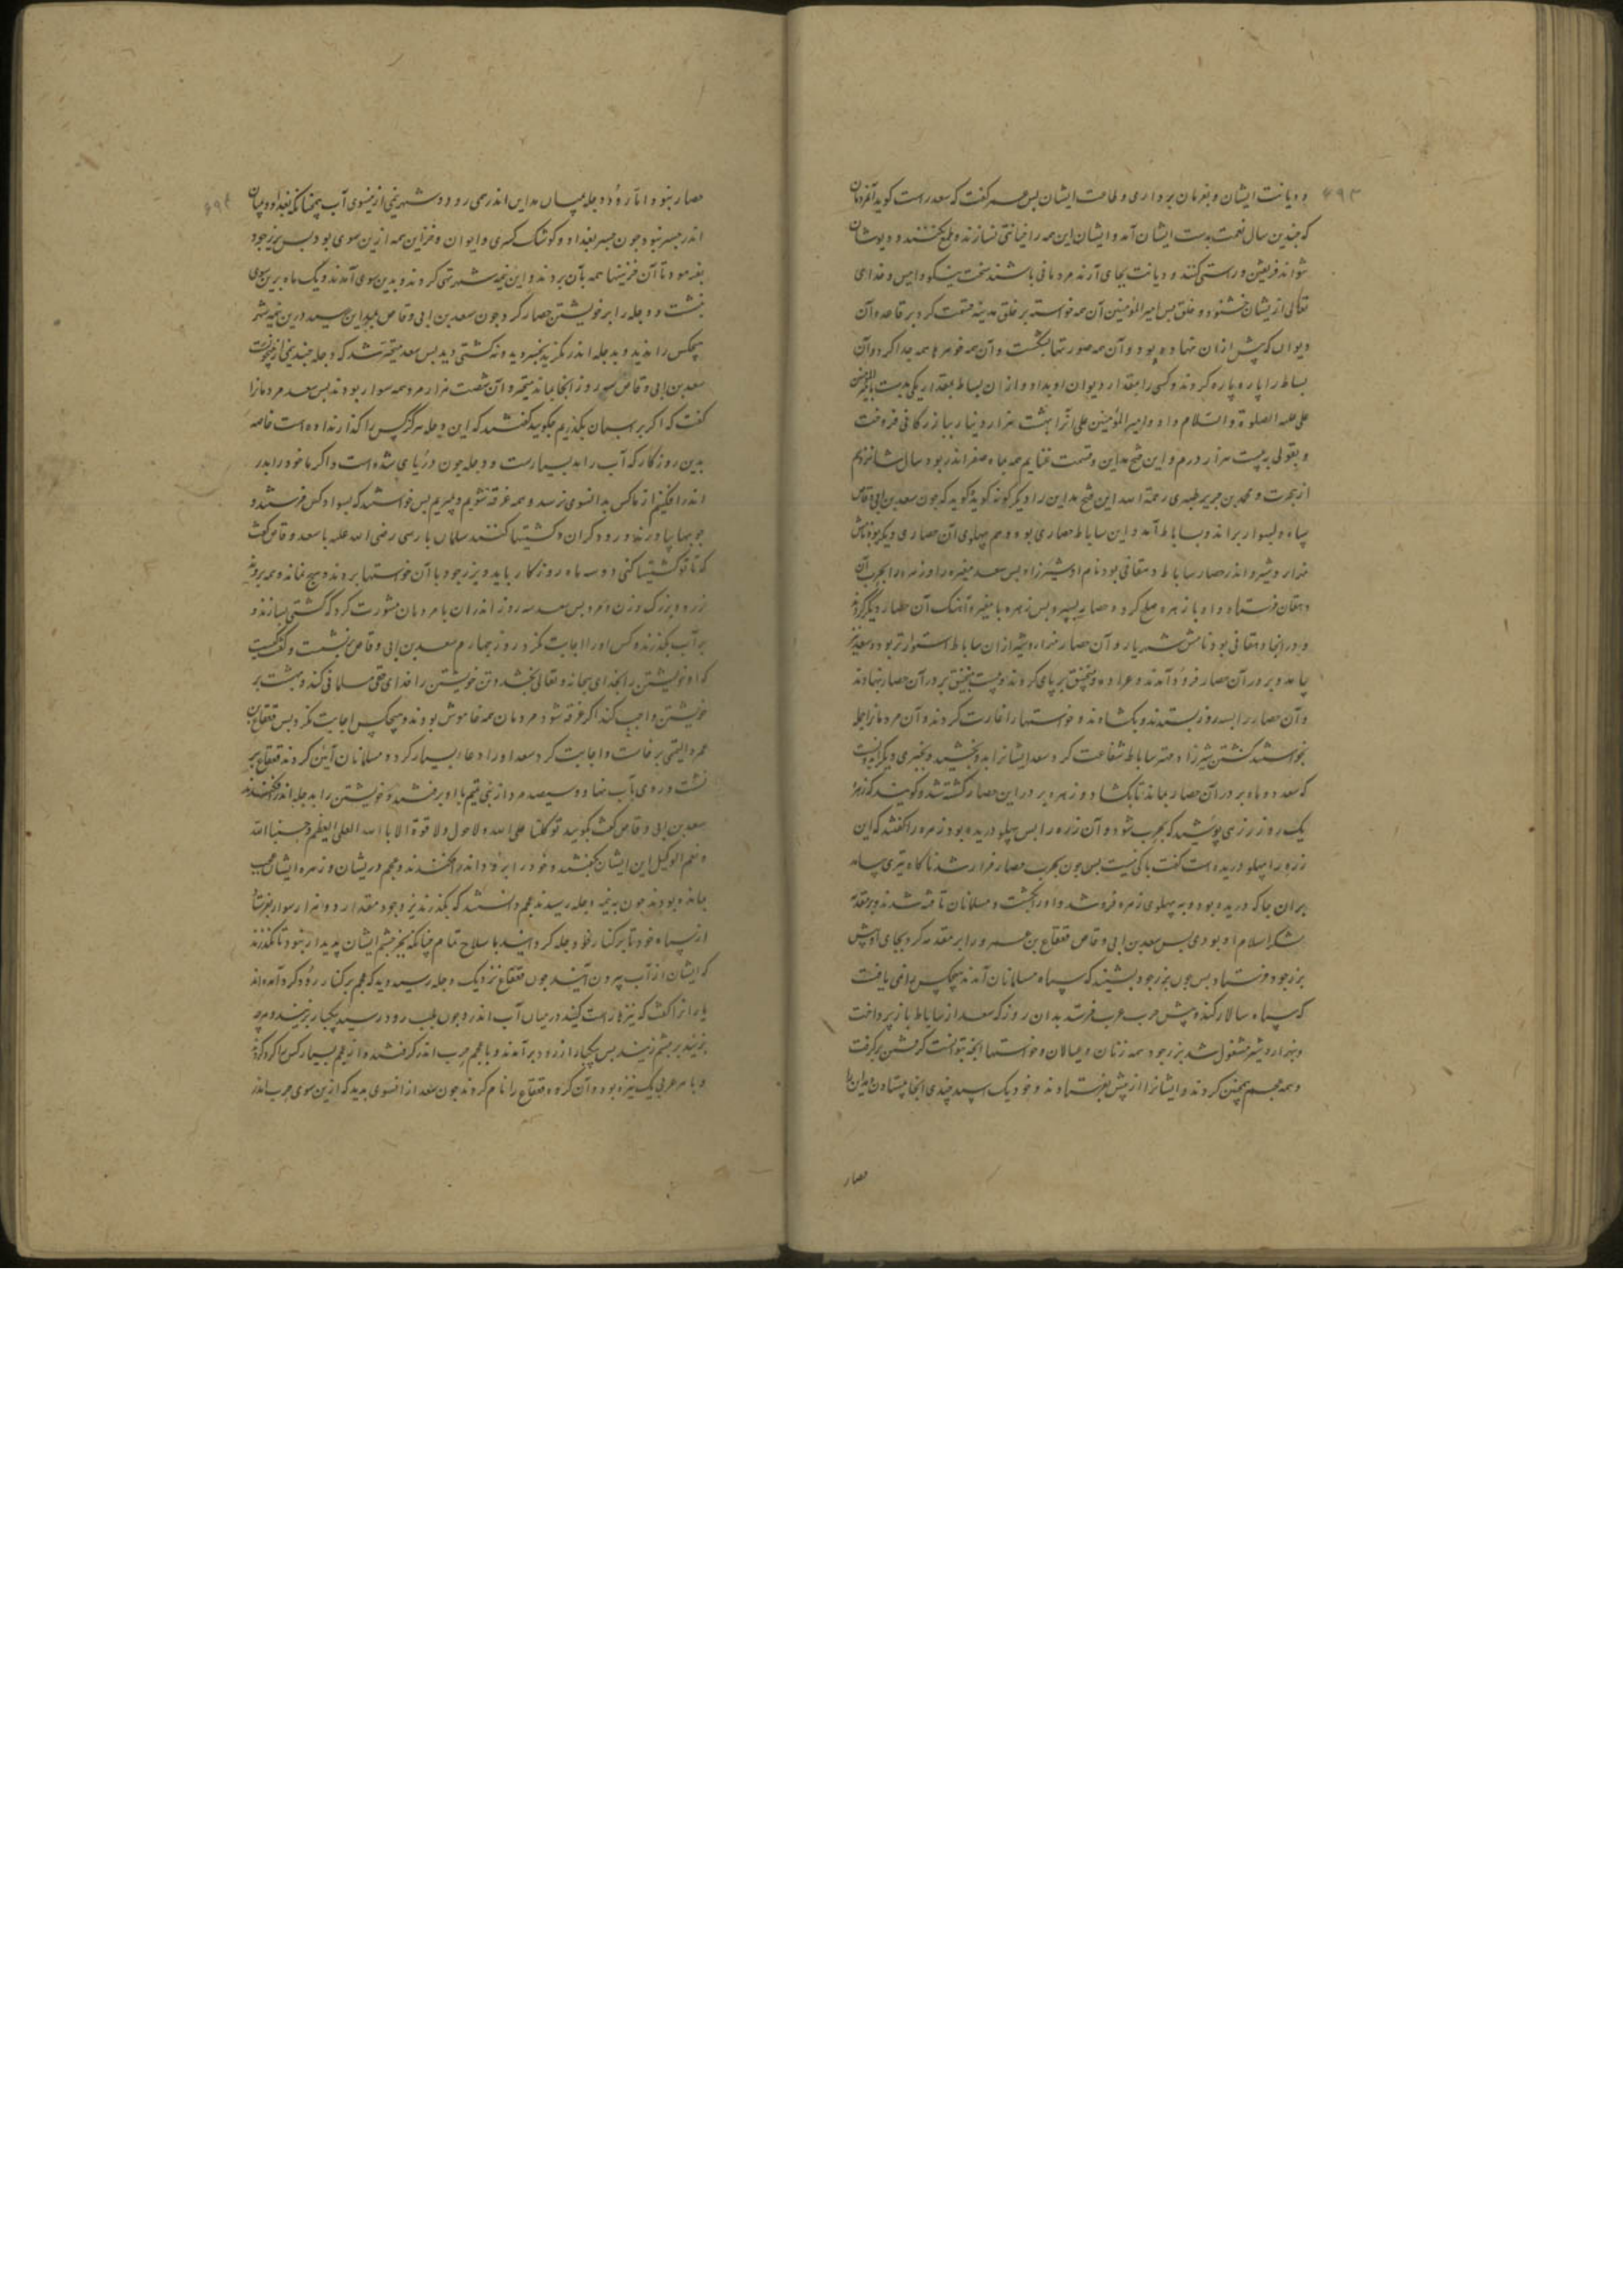 و دیانت ایشان و بفرمان برداری و طاعت ایشان پس عمر گفت که سعد راست گوید آن مردمان
که چندین سال نعمت بدست ایشان آمد و ایشان این همه را خیانتی نسازند و طمع نکنند و
کنند و دیانت بجای آرند مردمانی باشند سخت نیکو و امین و خدای
تعالی ازیشان خشنود و خلق پس امیر المؤمنین آن همه خواسته بر خلق مدینه قسمت کرد بر قاعده آن
دیوان که پیش ازان نهاده بود و آن همه صورتها بشکست و آن همه گوهرها همه جدا کرد و آن
بساط را پاره پاره کردند و کسی را بمقدار دیوان او بداد و ازان بساط بمقدار یک بدست
علی علیه الصلوة والسلام داد و امیر المؤمنین علی آنرا بهشت هزار دینار ببازرگانی فروخت
و بقولی به بیست هزار درم و این فتح مداین و قسمت غنایم همه بماه صفر اندر بود سال شانزدهم
از هجرت و محمد بن جریر طبری رحمة الله این فتح مداین را دیگر گونه گوید گوید که چون سعد بن ابی وقاص
سپاه و لسوار براند و بساباط آمد و این ساباط حصاری بود و هم پهلوی آن حصاری دیگر بود نامش
و اندر حصار ساباط دهقانی بود نام او شیرزاد پس سعد مغیره را و زهره را بحرب آن
دهقان فرستاد و او با زهره صلح کرد و حصار بسپرد پس زهره با مغیره آهنگ آن حصار دیگر کردند
و در انجا دهقانی بود نامش شهریار و آن حصار ازان ساباط استوارتر بود و سعد نیز
بیامد و بر در آن حصار فرود آمدند و عراده و منجنیق بر پای کردند و بیست منجنیق بر در آن حصار بنهادند
و آن حصار را بسه روز بستدند و بکشادند و خواستها را غارت کردند و آن مردمانرا جمله
بخواستند کشتن شیرزاد مهتر ساباط شفاعت کرد سعد ایشانرا بدو بخشید و بخبری دیگر ایدونست
که سعد دو ماه بر در آن حصار بماند تا بکشاد و زهره بر در این حصار کشته شد و گویند که زهره
یک روز زرهی پوشید که بحرب شود و آن زره را پس پهلو دریده بود زهره را گفتند که این
زره را پهلو دریده است گفت باکی نیست پس چون بحرب حصار فراز شد ناگاه تیری بیامد
بران جا که دریده بود و به پهلوی زهره فرو شد و او را بکشت و مسلمانان تافته شدند و بر مقدمه
لشکر اسلام او بودی پس سعد بن ابی وقاص قعقاع بن عمرو را بر مقدمه کرد بجای اوش
یزدجرد فرستاد پس چون یزدجرد بشنید که سپاه مسلمانان آمدند هیچکس را نمی یافت
که سپاه سالار کند و پیش حرب عرب فرستد بدان روز که سعد از ساباط باز پرداخت
و مشغول شد یزدجرد همه زنان و عیالان و خواستها آنچه بتوانست گرفتن برگرفت
و همه عجم همچنین کردند و ایشانرا از پیش بفرستادند و خود یک اسپه چندی انجا بیستاد و مداین را
حصار
حصار نبود و اما رود دجله بمیان مداین اندر همی رود و شهر نیمی ازینسوی آب همچنانکه بغداد و میان
اندر جسر بود چون جسر بغداد و کوشک کسری و ایوان و خزاین همه ازین سوی بود پس یزدجرد
بفرمود تا آن خزینها همه بآن بردند و این نیمه شهر تهی کردند و بدین سوی آمدند و یک ماه برین سوی
بنشست و دجله را بر خویشتن حصار کرد چون سعد بن ابی وقاص بمداین رسید درین نیمه شهر
هیچکس را ندید و بدجله اندر نگرید نه جسر دید و نه کشتی دید پس سعد متحیر شد که دجله
سعد بن ابی وقاص سه روز انجا بماند متحیر و آن شصت هزار مرد همه سوار بودند پس سعد مردمانرا
گفت که اگر بر اسپان بگذریم چگویید گفتند که این دجله هرگز کس را گذار نداده است خاصه
بدین روزگار که آب را مد بسیارست و دجله چون دریای شده است و اگر ما خود را بدو
اندر افگنیم از ما کس بدانسوی نرسد و همه غرقه شویم و بمیریم پس خواستند که بسواد کس فرستند و
چوبها بیاورند و درودگران و کشتیها کنند سلمان پارسی رضی الله علیه با سعد وقاص گفت
که تا تو کشتیها کنی دو سه ماه روزگار باید و یزدجرد با آن خواستها بروند و هیچ نماند و ببرند
زر و بزرگ و زن و مرد پس سعد سه روز اندران با مردمان مشورت کرد که کشتی سازند و
بر آب بگذرند و کس او را اجابت نکرد روز چهارم سعد بن ابی وقاص بنشست و گفت کیست
که او خویشتن را بخدای سبحانه و تعالی بخشد و تن خویشتن را خدای حق مسلمانی کند و بهشت بر
خویشتن واجب کند اگر غرقه شود مردمان همه خاموش بودند و هیچکس اجابت نکرد پس قعقاع بن
عمرو التیمی برخاست و اجابت کرد سعد او را دعا بسیار کرد و مسلمانان آمین کردند قعقاع بر
نشست و روی بآب نهاد و سیصد مرد از بنی تمیم با او برفتند و خویشتن را بدجله اندر افکندند
سعد بن ابی وقاص گفت بگویید توکلنا علی الله ولا حول ولا قوة الا بالله العلی العظیم و حسبنا الله
و نعم الوکیل این ایشان بگفتند و خود را برود اندر افکندند و عجم دریشان و زهره ایشان عجب
بمانده بودند چون به نیمه دجله رسیدند عجم دانستند که بگذرند یزدجرد مقدار دو هزار سوار بفرستاد
از سپاه خود تا بر کنار رود دجله گرد آیند با سلاح تمام چنانکه بجز چشم ایشان پدیدار نبود تا نگذرند
که ایشان از آب بیرون آیند چون قعقاع نزدیک دجله رسید دید که عجم بر کنار رود گرد آمده اند
یارانرا گفت که نیزها راست کنید در میان آب اندر و چون بلب رود رسید یکبار بزنید و هر چه
بزنید بر چشم زنید پس یکبار از رود برآمدند و با عجم حرب اندر گرفتند و از عجم بسیار کس را کور کردند
و با هر عربی یک نیزه بود و آن گروه قعقاع را نام کردند چون سعد از انسوی بدید که ازین سوی حرب اندر